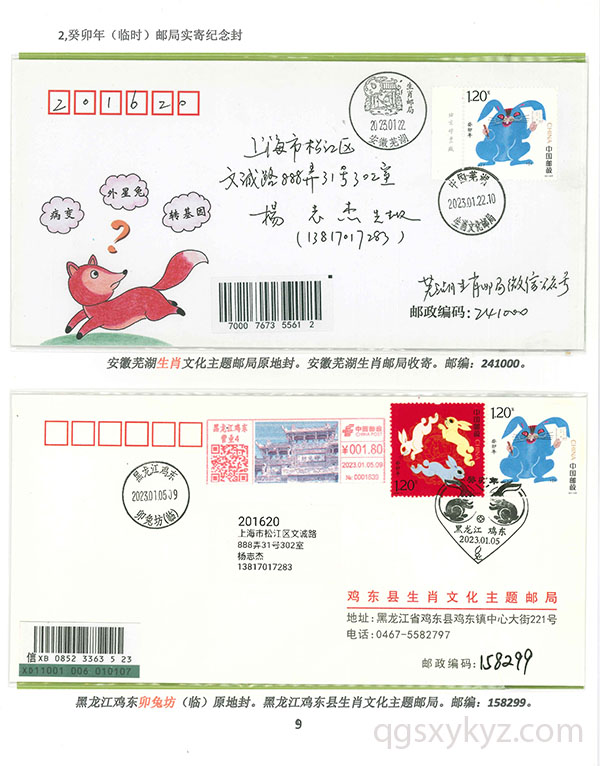 2,癸卯年（临时）邮局实寄纪念封
201620
生肖邮局
2023.01.22
安徽芜湖
1.20元
中国邮政
CHINA
上海市松江区
文诚路888弄31号302室
杨志杰
(13817017283)
病变
外星兔
转基因
?
中国芜湖
2023.01.22.10
生肖文化邮局
7000 7673 5561 2
芜湖生肖邮局微信公众号
邮政编码：241000
安徽芜湖生肖文化主题邮局原地封。安徽芜湖生肖邮局收寄。邮编：241000。
黑龙江鸡东
2023.01.05.09
卯兔坊(临)
黑龙江鸡东
营业4
中国邮政
CHINA POST
¥001.80
2023.01.05.09
№ 0001620
1.20元
中国邮政
1.20元
CHINA
中国邮政
癸卯年
黑龙江 鸡东
2023.01.05
201620
上海市松江区文诚路
888弄31号302室
杨志杰
13817017283
鸡东县生肖文化主题邮局
地址：黑龙江省鸡东县鸡东镇中心大街221号
电话：0467-5582797
邮政编码：158299
信XB 0852 3363 5 23
XB11001 006 010107
黑龙江鸡东卯兔坊（临）原地封。黑龙江鸡东县生肖文化主题邮局。邮编：158299。
9
qgsxykyz.com